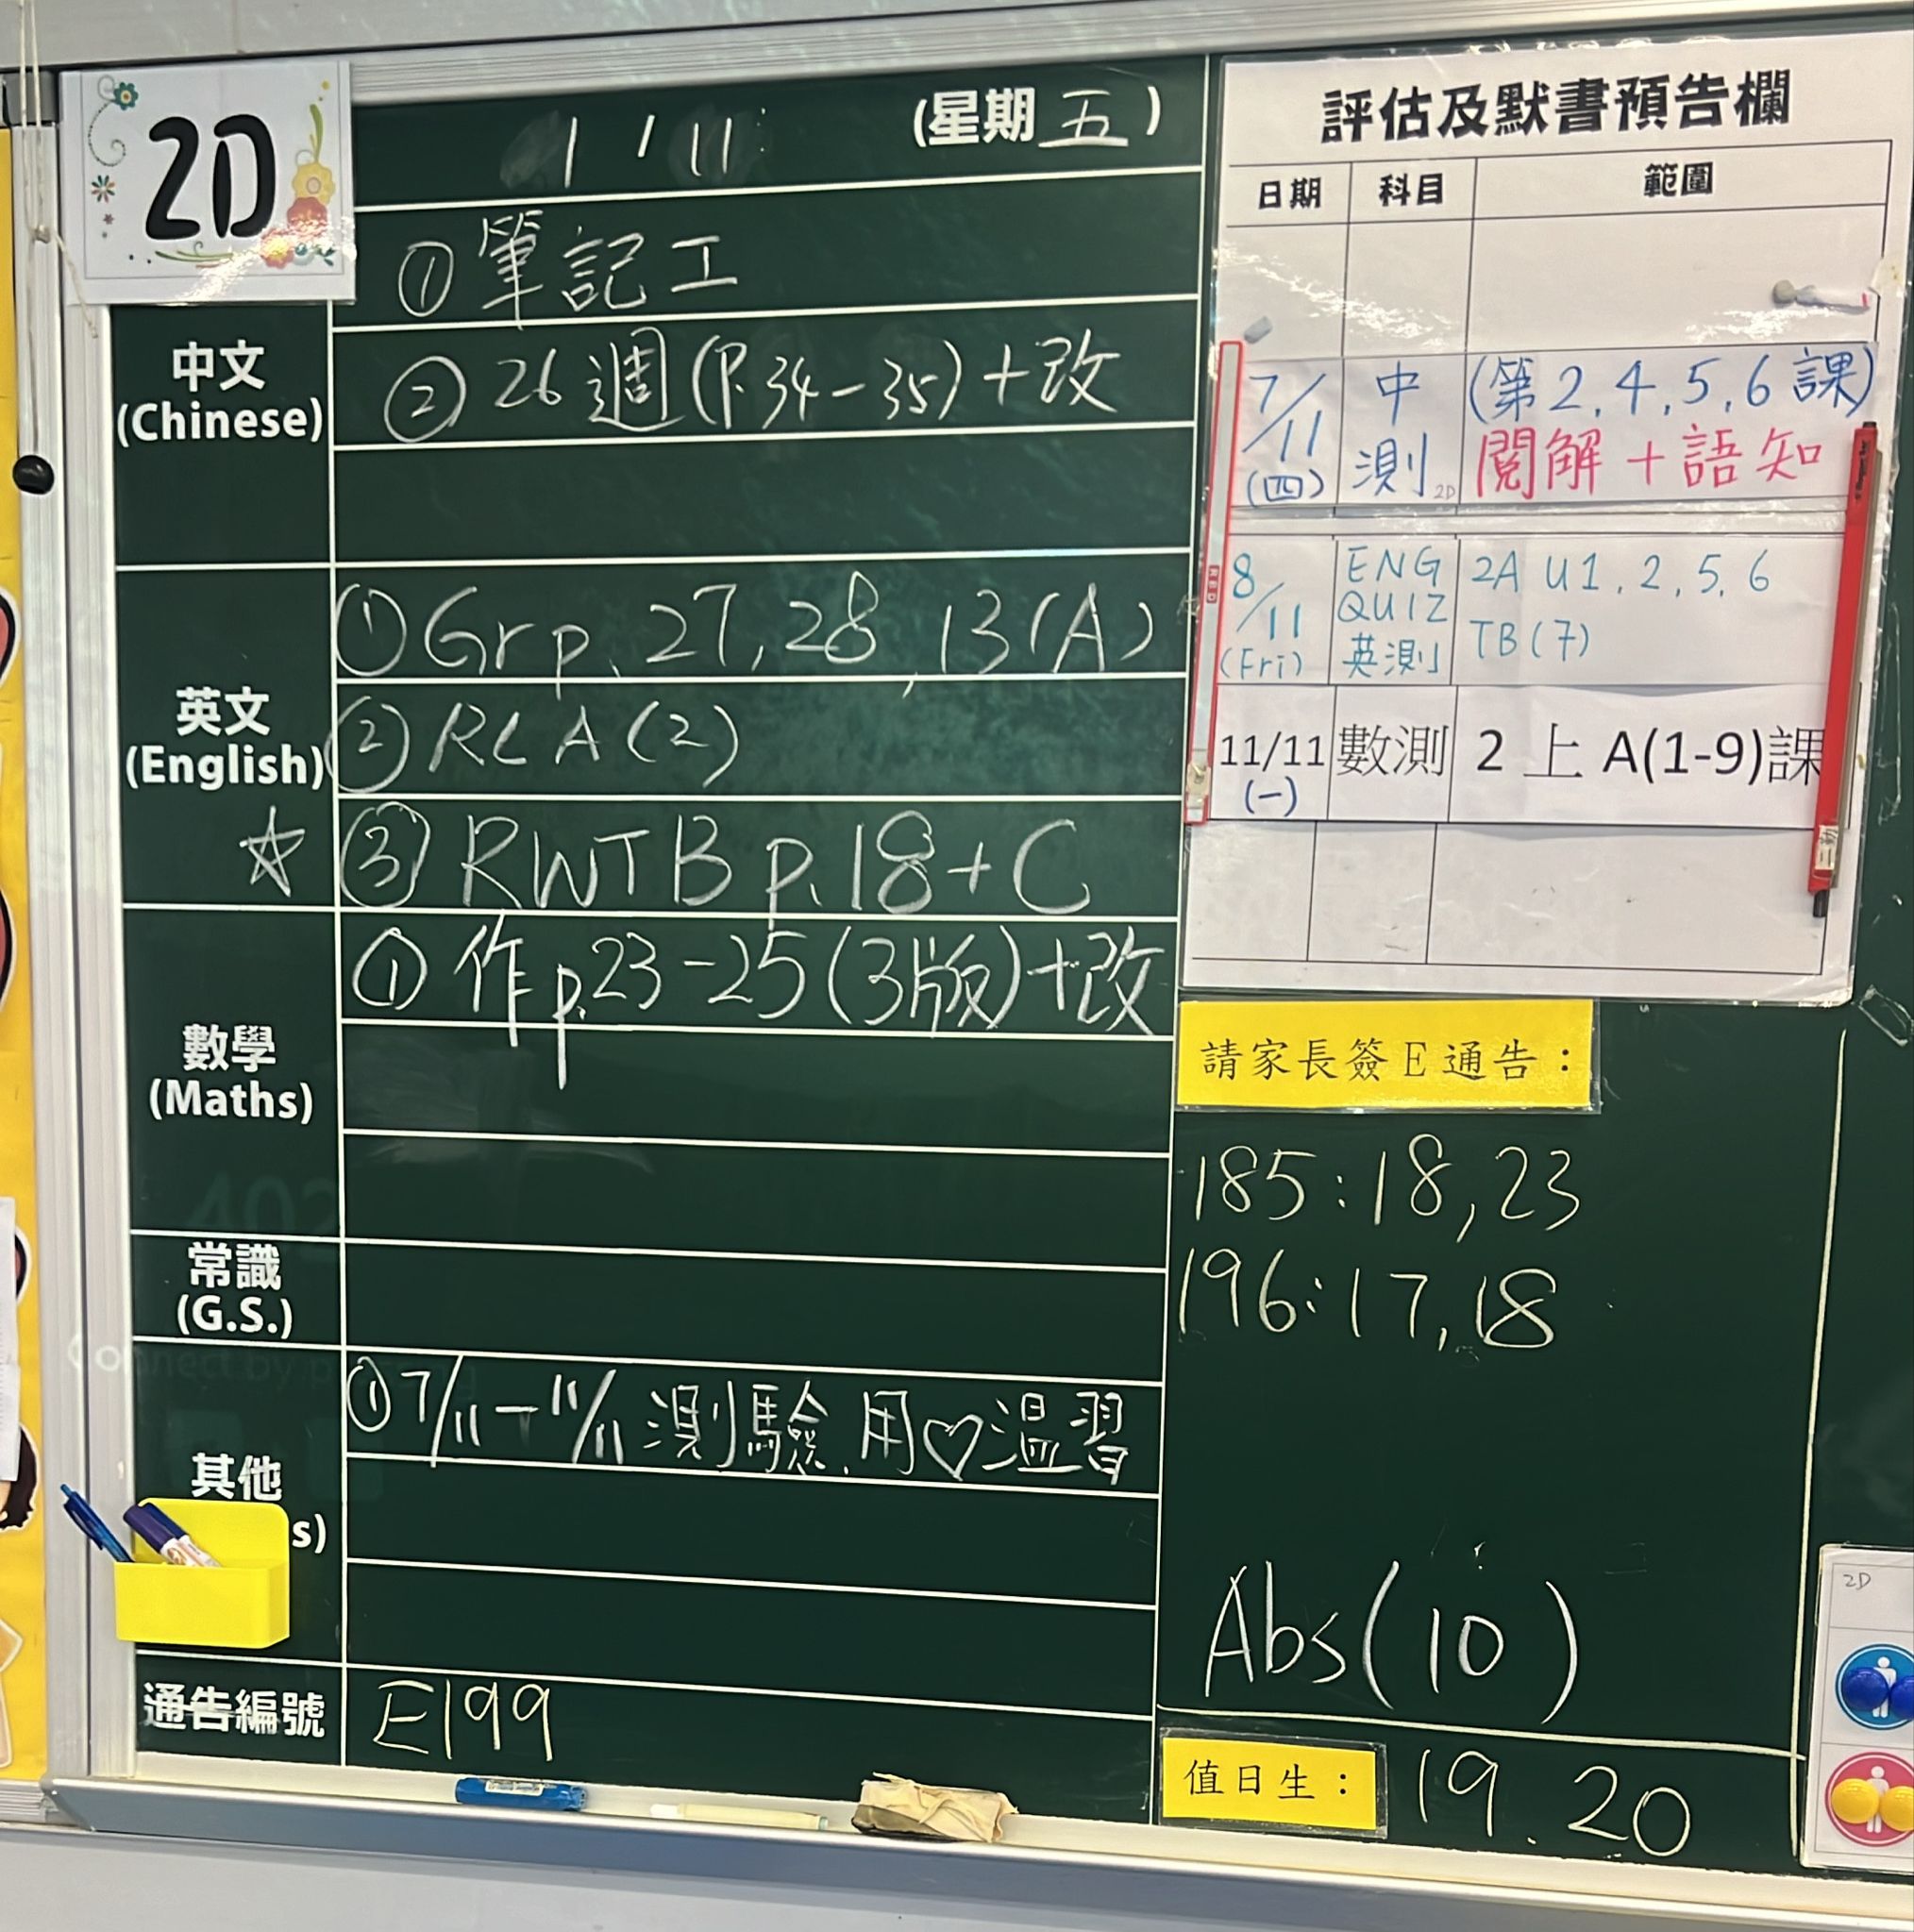 2D
1 / 11 (星期 五 )
① 筆記工
中文
(Chinese)
② 26 週 (P.34-35)+改
英文
(English)
① Gr p. 27, 28, 13(A)
② RC A (2)
☆ ③ RWTB p.18+C
數學
(Maths)
① 作 p.23-25(3版)+改
常識
(G.S.)
其他
s)
① 7/11-11/11 測驗. 用♡溫習
通告編號
E199
評估及默書預告欄
日期 科目 範圍
7/11 (四) 中測 2D (第2,4,5,6課)
閱解+語知
8/11 (Fri) ENG QUIZ 英測 2A U1, 2, 5, 6
TB(7)
11/11 (一) 數測 2 上 A(1-9)課
請家長簽E通告：
185:18,23
196:17,18
Abs(10)
值日生：
19. 20
2D